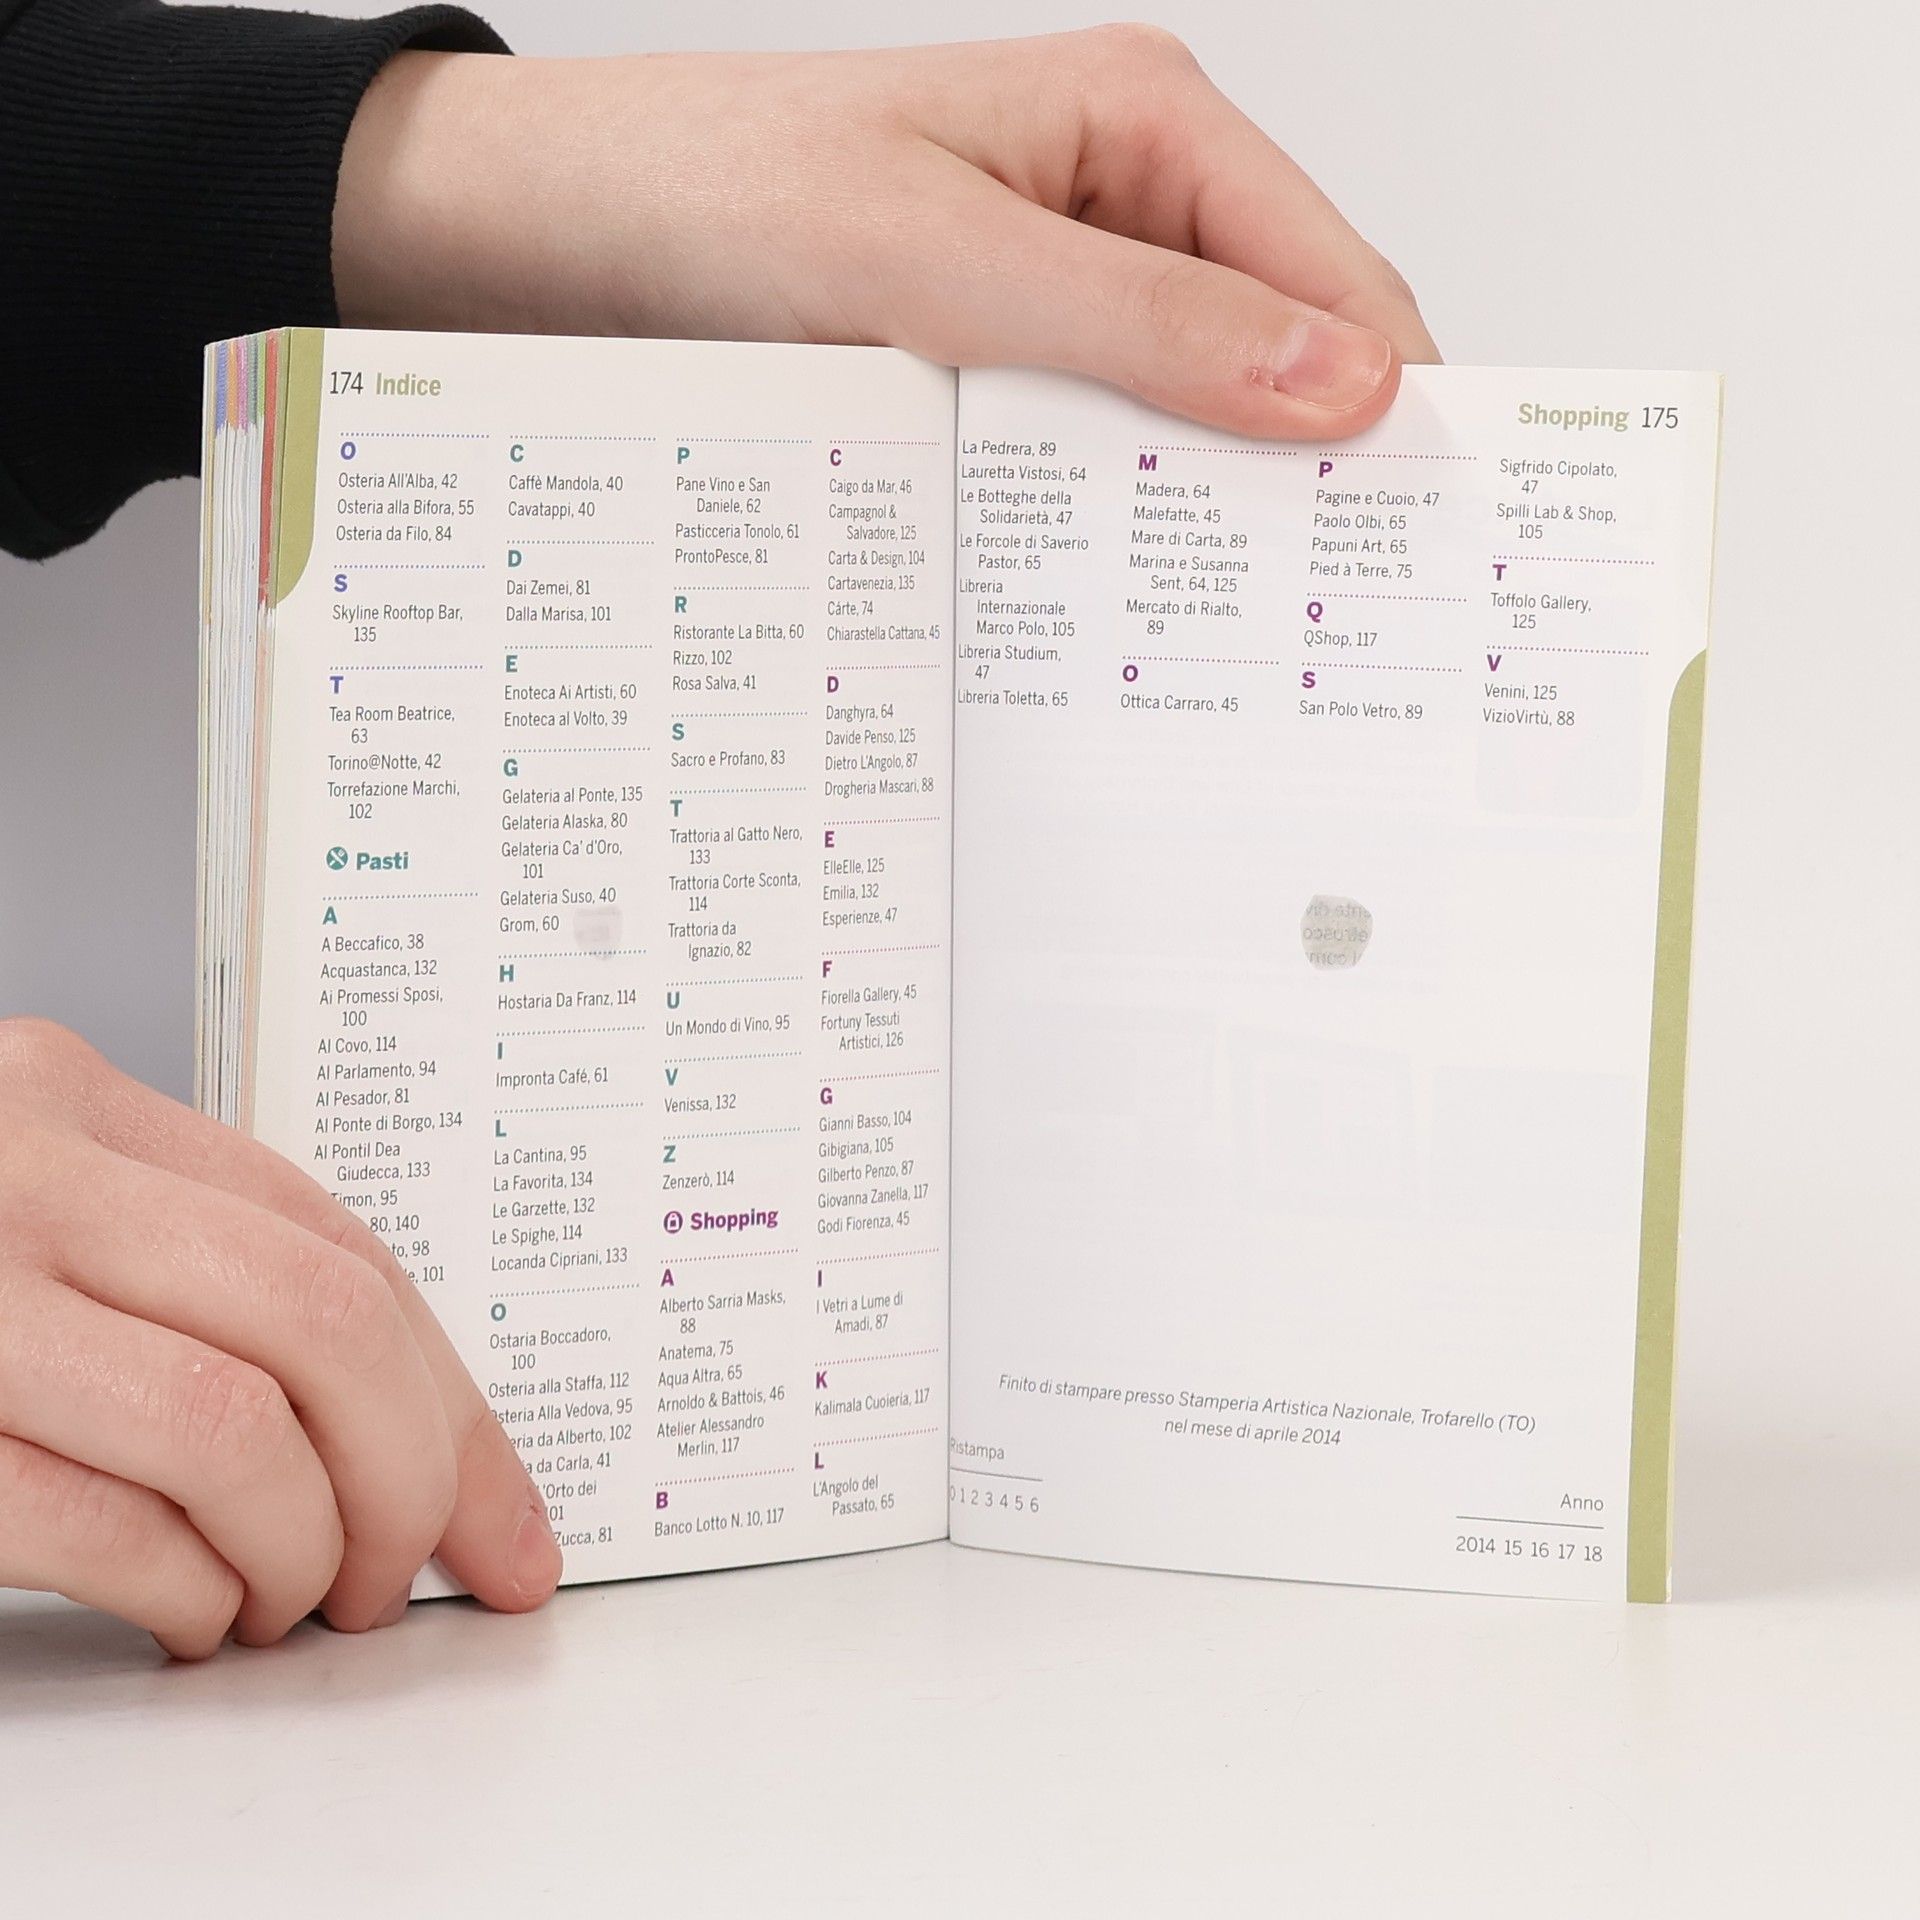 174 Indice
O
Osteria All'Alba, 42
Osteria alla Bifora, 55
Osteria da Filo, 84
S
Skyline Rooftop Bar,
135
T
Tea Room Beatrice,
63
Torino@Notte, 42
Torrefazione Marchi,
102
Pasti
A
A Beccafico, 38
Acquastanca, 132
Ai Promessi Sposi,
100
Al Covo, 114
Al Parlamento, 94
Al Pesador, 81
Al Ponte di Borgo, 134
Al Pontil Dea
Giudecca, 133
Timon, 95
80, 140
98
101
C
Caffè Mandola, 40
Cavatappi, 40
D
Dai Zemei, 81
Dalla Marisa, 101
E
Enoteca Ai Artisti, 60
Enoteca al Volto, 39
G
Gelateria al Ponte, 135
Gelateria Alaska, 80
Gelateria Ca' d'Oro,
101
Gelateria Suso, 40
Grom, 60
H
Hostaria Da Franz, 114
I
Impronta Café, 61
L
La Cantina, 95
La Favorita, 134
Le Garzette, 132
Le Spighe, 114
Locanda Cipriani, 133
O
Ostaria Boccadoro,
100
Osteria alla Staffa, 112
Osteria Alla Vedova, 95
da Alberto, 102
da Carla, 41
'Orto dei
101
Zucca, 81
P
Pane Vino e San
Daniele, 62
Pasticceria Tonolo, 61
ProntoPesce, 81
R
Ristorante La Bitta, 60
Rizzo, 102
Rosa Salva, 41
S
Sacro e Profano, 83
T
Trattoria al Gatto Nero,
133
Trattoria Corte Sconta,
114
Trattoria da
Ignazio, 82
U
Un Mondo di Vino, 95
V
Venissa, 132
Z
Zenzerò, 114
Shopping
A
Alberto Sarria Masks,
88
Anatema, 75
Aqua Altra, 65
Arnoldo & Battois, 46
Atelier Alessandro
Merlin, 117
B
Banco Lotto N. 10, 117
C
Caigo da Mar, 46
Campagnol &
Salvadore, 125
Carta & Design, 104
Cartavenezia, 135
Cárte, 74
Chiarastella Cattana, 45
D
Danghyra, 64
Davide Penso, 125
Dietro L'Angolo, 87
Drogheria Mascari, 88
E
ElleElle, 125
Emilia, 132
Esperienze, 47
F
Fiorella Gallery, 45
Fortuny Tessuti
Artistici, 126
G
Gianni Basso, 104
Gibigiana, 105
Gilberto Penzo, 87
Giovanna Zanella, 117
Godi Fiorenza, 45
I
I Vetri a Lume di
Amadi, 87
K
Kalimala Cuoieria, 117
L
L'Angolo del
Passato, 65
Shopping 175
La Pedrera, 89
Lauretta Vistosi, 64
Le Botteghe della
Solidarietà, 47
Le Forcole di Saverio
Pastor, 65
Libreria
Internazionale
Marco Polo, 105
Libreria Studium,
47
Libreria Toletta, 65
M
Madera, 64
Malefatte, 45
Mare di Carta, 89
Marina e Susanna
Sent, 64, 125
Mercato di Rialto,
89
O
Ottica Carraro, 45
P
Pagine e Cuoio, 47
Paolo Olbi, 65
Papuni Art, 65
Pied à Terre, 75
Q
QShop, 117
S
San Polo Vetro, 89
Sigfrido Cipolato,
47
Spilli Lab & Shop,
105
T
Toffolo Gallery,
125
V
Venini, 125
VizioVirtù, 88
Finito di stampare presso Stamperia Artistica Nazionale, Trofarello (TO)
nel mese di aprile 2014
Ristampa
0 1 2 3 4 5 6
Anno
2014 15 16 17 18